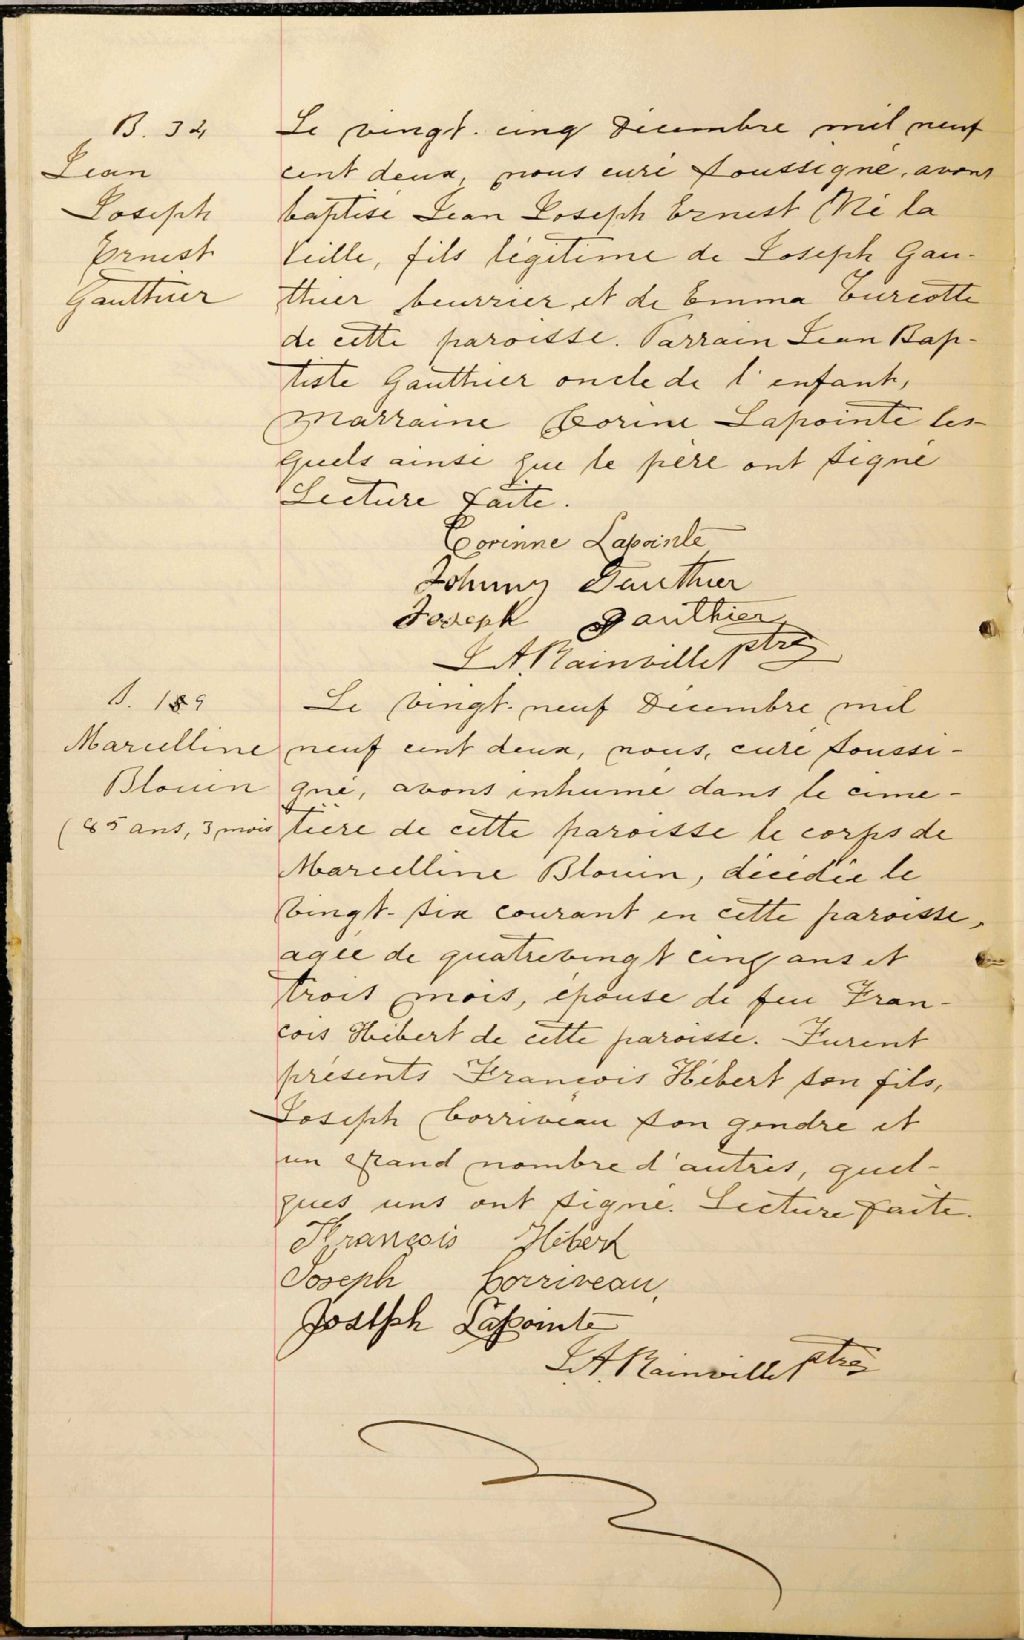 B. 34
Jean
Joseph
Ernest
Gauthier
Le vingt-cinq Décembre mil neuf
cent deux, nous curé soussigné, avons
baptisé Jean Joseph Ernest Né la
veille, fils légitime de Joseph Gau-
thier beurrier, et de Emma Turcotte
de cette paroisse. Parrain Jean Bap-
tiste Gauthier oncle de l'enfant,
marraine Corine Lapointe les-
quels ainsi que le père ont signé
Lecture faite.
Corinne Lapointe
Johnny Gauthier
Joseph Gauthier
J. A. Rainville ptre
S. 9
Marcelline
Blouin
(85 ans, 3 mois
Le vingt-neuf Décembre mil
neuf cent deux, nous, curé soussi-
gné, avons inhumé dans le cime-
tière de cette paroisse le corps de
Marcelline Blouin, décédée le
vingt-six courant en cette paroisse,
agée de quatrevingt cinq ans et
trois mois, épouse de feu Fran-
cois Hébert de cette paroisse. Furent
présents Francois Hébert son fils,
Joseph Corriveau son gendre et
un grand nombre d'autres, quel-
ques uns ont signé. Lecture faite.
François Hébert
Joseph Corriveau,
Joseph Lapointe
J. A. Rainville ptre